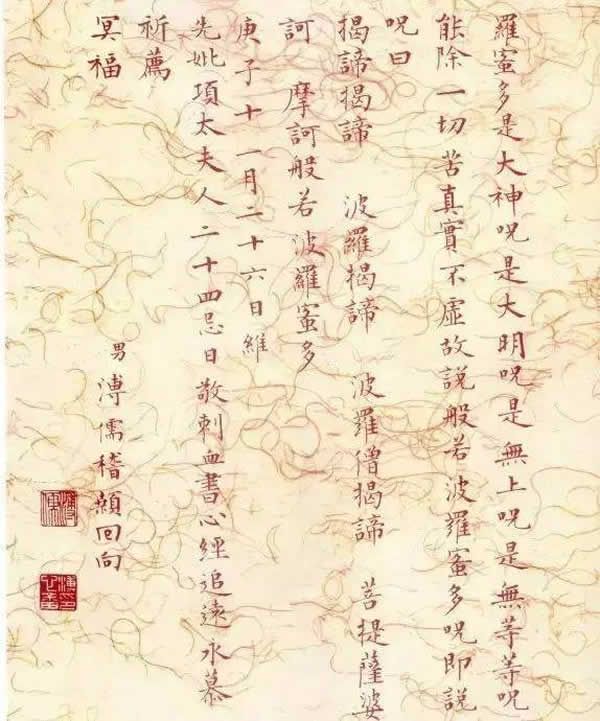 羅蜜多是大神呪是大明呪是無上呪是無等等呪
能除一切苦真實不虛故說般若波羅蜜多呪即說
呪曰
揭諦揭諦 波羅揭諦 波羅僧揭諦 菩提薩婆
訶 摩訶般若波羅蜜多
庚子十一月二十六日維
先妣項太夫人二十四忌日敬刺血書心經追遠永慕
祈薦
冥福
男 溥儒稽顙回向
溥儒